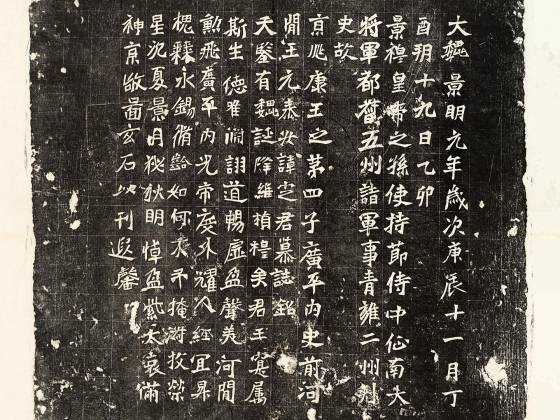 大魏景明元年歲次庚辰十一月丁
酉朔十九日乙卯
景穆皇帝之孫使持節侍中征南大
將軍都督五州諸軍事青雍二州刺
史故
京兆康王之第四子廣平內史前河
間王元泰安諱定君墓誌銘
天鑒有魏誕降維楨穆矣君王寔属
斯生德淮淵詡道暢虛盈聲美河間
勳飛廣平內光帝度外耀人經宜昇
槐棘永錫脩齡如何不掩澍收榮
星沉夏景月秘狄明悼盈紫太哀滿
神京敬圖玄石以刊遐馨